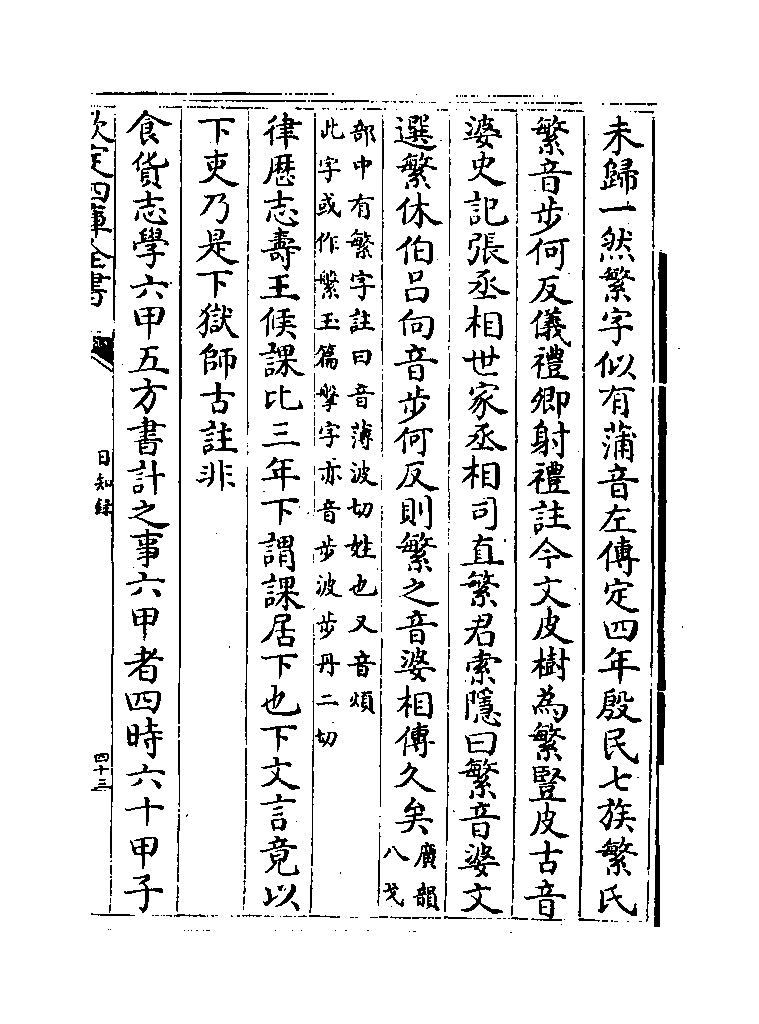 未歸一然繁字似有蒲音左傳定四年殷民七族繁氏
繁音步何反儀禮鄉射禮註今文皮樹為繁豎皮古音
婆史記張丞相世家丞相司直繁君索隱曰繁音婆文
選繁休伯吕向音步何反則繁之音婆相傳久矣廣韻
八戈
部中有繁字註曰音薄波切姓也又音煩
此字或作䋣玉篇䋣字亦音步波步丹二切
律歴志壽王候課比三年下謂課居下也下文言竟以
下吏乃是下獄師古註非
食貨志學六甲五方書計之事六甲者四時六十甲子
欽定四庫全書
日知録
四十三